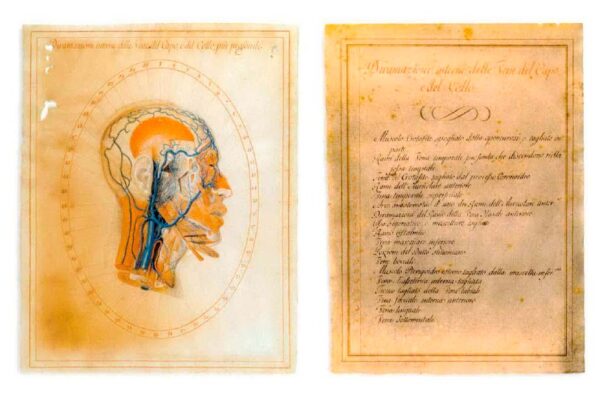 Diramazioni interne delle Vene del Capo e del Collo più profonde
Diramazione interne delle Vene del Capo
e del Collo
Muscolo Crotafito spogliato dalla aponeurosi e tagliato in
parte
Rami della Vena temporale profonda che discendono nella
fossa temporale
del Crotafito tagliato dal processo Coronoideo
Rami dell'Auricolare anteriore
Vena temporale superficiale
dei Rami dell'Auricolari anter
Diramazioni del Ramo della Vena anteriore
Osso e mascellare
Ramo Oftalmico
Vena mascellare inferiore
Porzioni del Dutto Stenoniano
Vene boccali
Muscolo Pterigoideo esterno tagliato dalla mascella infer
Vena interna tagliata
tagliato della Vena labiale
Vena facciale interna anteriore
Vena linguale
Vena Sottomentale